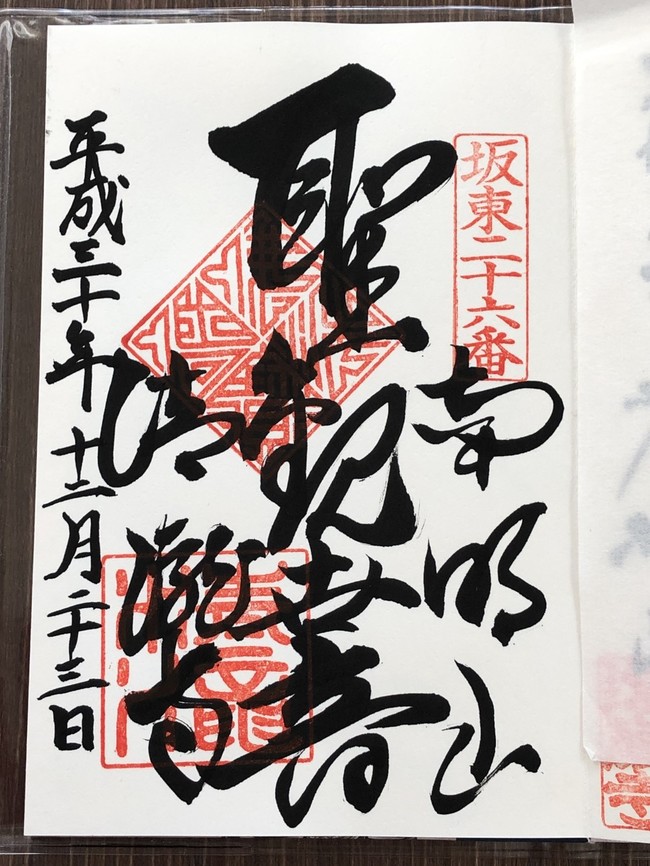 坂東二十六番
南明山
聖観世音
清瀧寺
平成三十年十二月二十三日